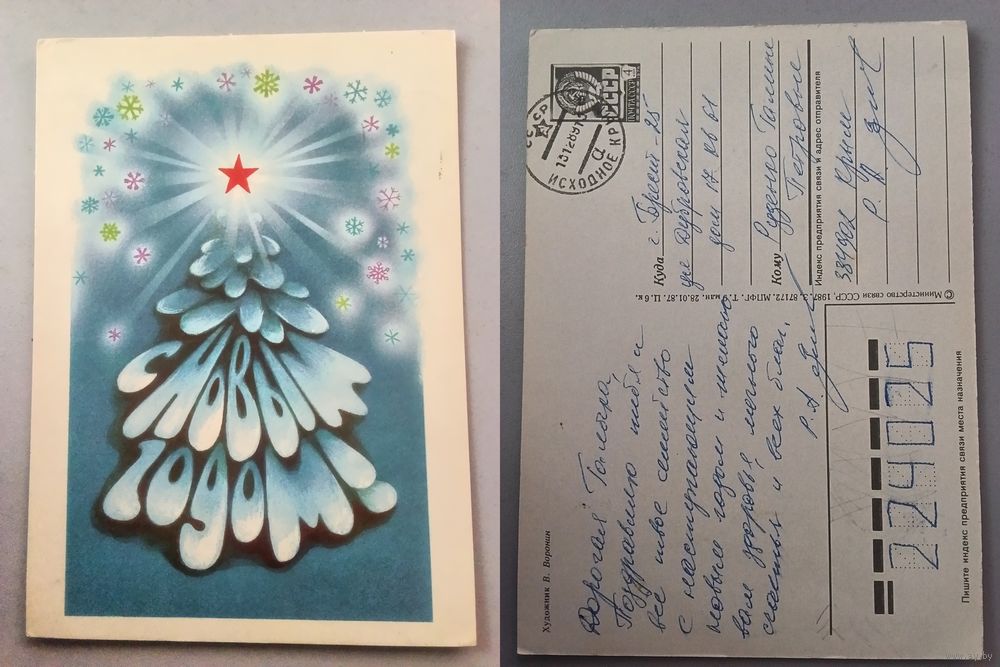 С НОВЫМ
ГОДОМ
Художник В. Воронин
Дорогая
Поздравляю тебя и
все твое семейство
с наступающим
новым годом и желаю
вам здоровья,
счастья и всех благ.
© Министерство связи СССР, 1987. З. 87172. МПФГ. Т. 9 млн. 28.01.87. Ц. 6 к.
СССР
4
ПОЧТА СССР
СССР
131289
ИСХОДНОЕ КР
а
Куда
г. Брест-25
ул Дубровская
дом 17 кв 61
Кому
Руденко Галине
Петровне
Индекс предприятия связи и адрес отправителя
Крым
224025
Пишите индекс предприятия связи места назначения